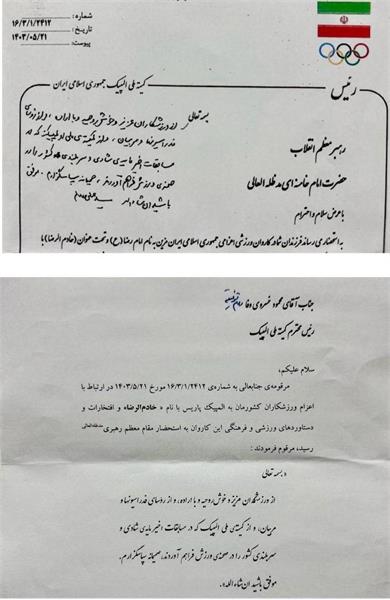 شماره: ۱۶/۳/۱/۲۴۱۲
تاریخ: ۱۴۰۳/۰۵/۲۱
پیوست:
رئیس
کمیته ملی المپیک جمهوری اسلامی ایران
رهبر معظم انقلاب
حضرت امام خامنه ای مد ظله العالی
با عرض سلام و احترام
به استحضار می رساند فرزندان شما در کاروان ورزشی اعزامی جمهوری اسلامی ایران مزین به نام امام رضا (ع) و تحت عنوان (خادم الرضا) با
بسمه تعالی
از ورزشکاران عزیز و خوش روحیه و با اراده، و از رؤسای
فدراسیونها و مربیان، و از کمیته‌ی ملی المپیک که در
مسابقات اخیر مایه‌ی شادی و سربلندی کشور را در
صحنه‌ی ورزش فراهم آوردند، صمیمانه سپاسگزارم. موفق
باشید ان شاءالله
جناب آقای محمود خسروی وفا
رئیس محترم کمیته ملی المپیک
سلام علیکم،
مرقومه‌ی جنابعالی به شماره‌ی ۱۶/۳/۱/۲۴۱۲ مورخ ۱۴۰۳/۵/۲۱ در ارتباط با
اعزام ورزشکاران کشورمان به المپیک پاریس با نام « خادم‌الرضا» و افتخارات و
دستاوردهای ورزشی و فرهنگی این کاروان به استحضار مقام معظم رهبری مدظله‌العالی
رسید، مرقوم فرمودند:
«بسمه تعالی
از ورزشکاران عزیز و خوش روحیه و با اراده، و از رؤسای فدراسیونها و
مربیان، و از کمیته‌ی ملی المپیک که در مسابقات اخیر مایه‌ی شادی و
سربلندی کشور را در صحنه‌ی ورزش فراهم آوردند، صمیمانه سپاسگزارم.
موفق باشید ان شاءالله».